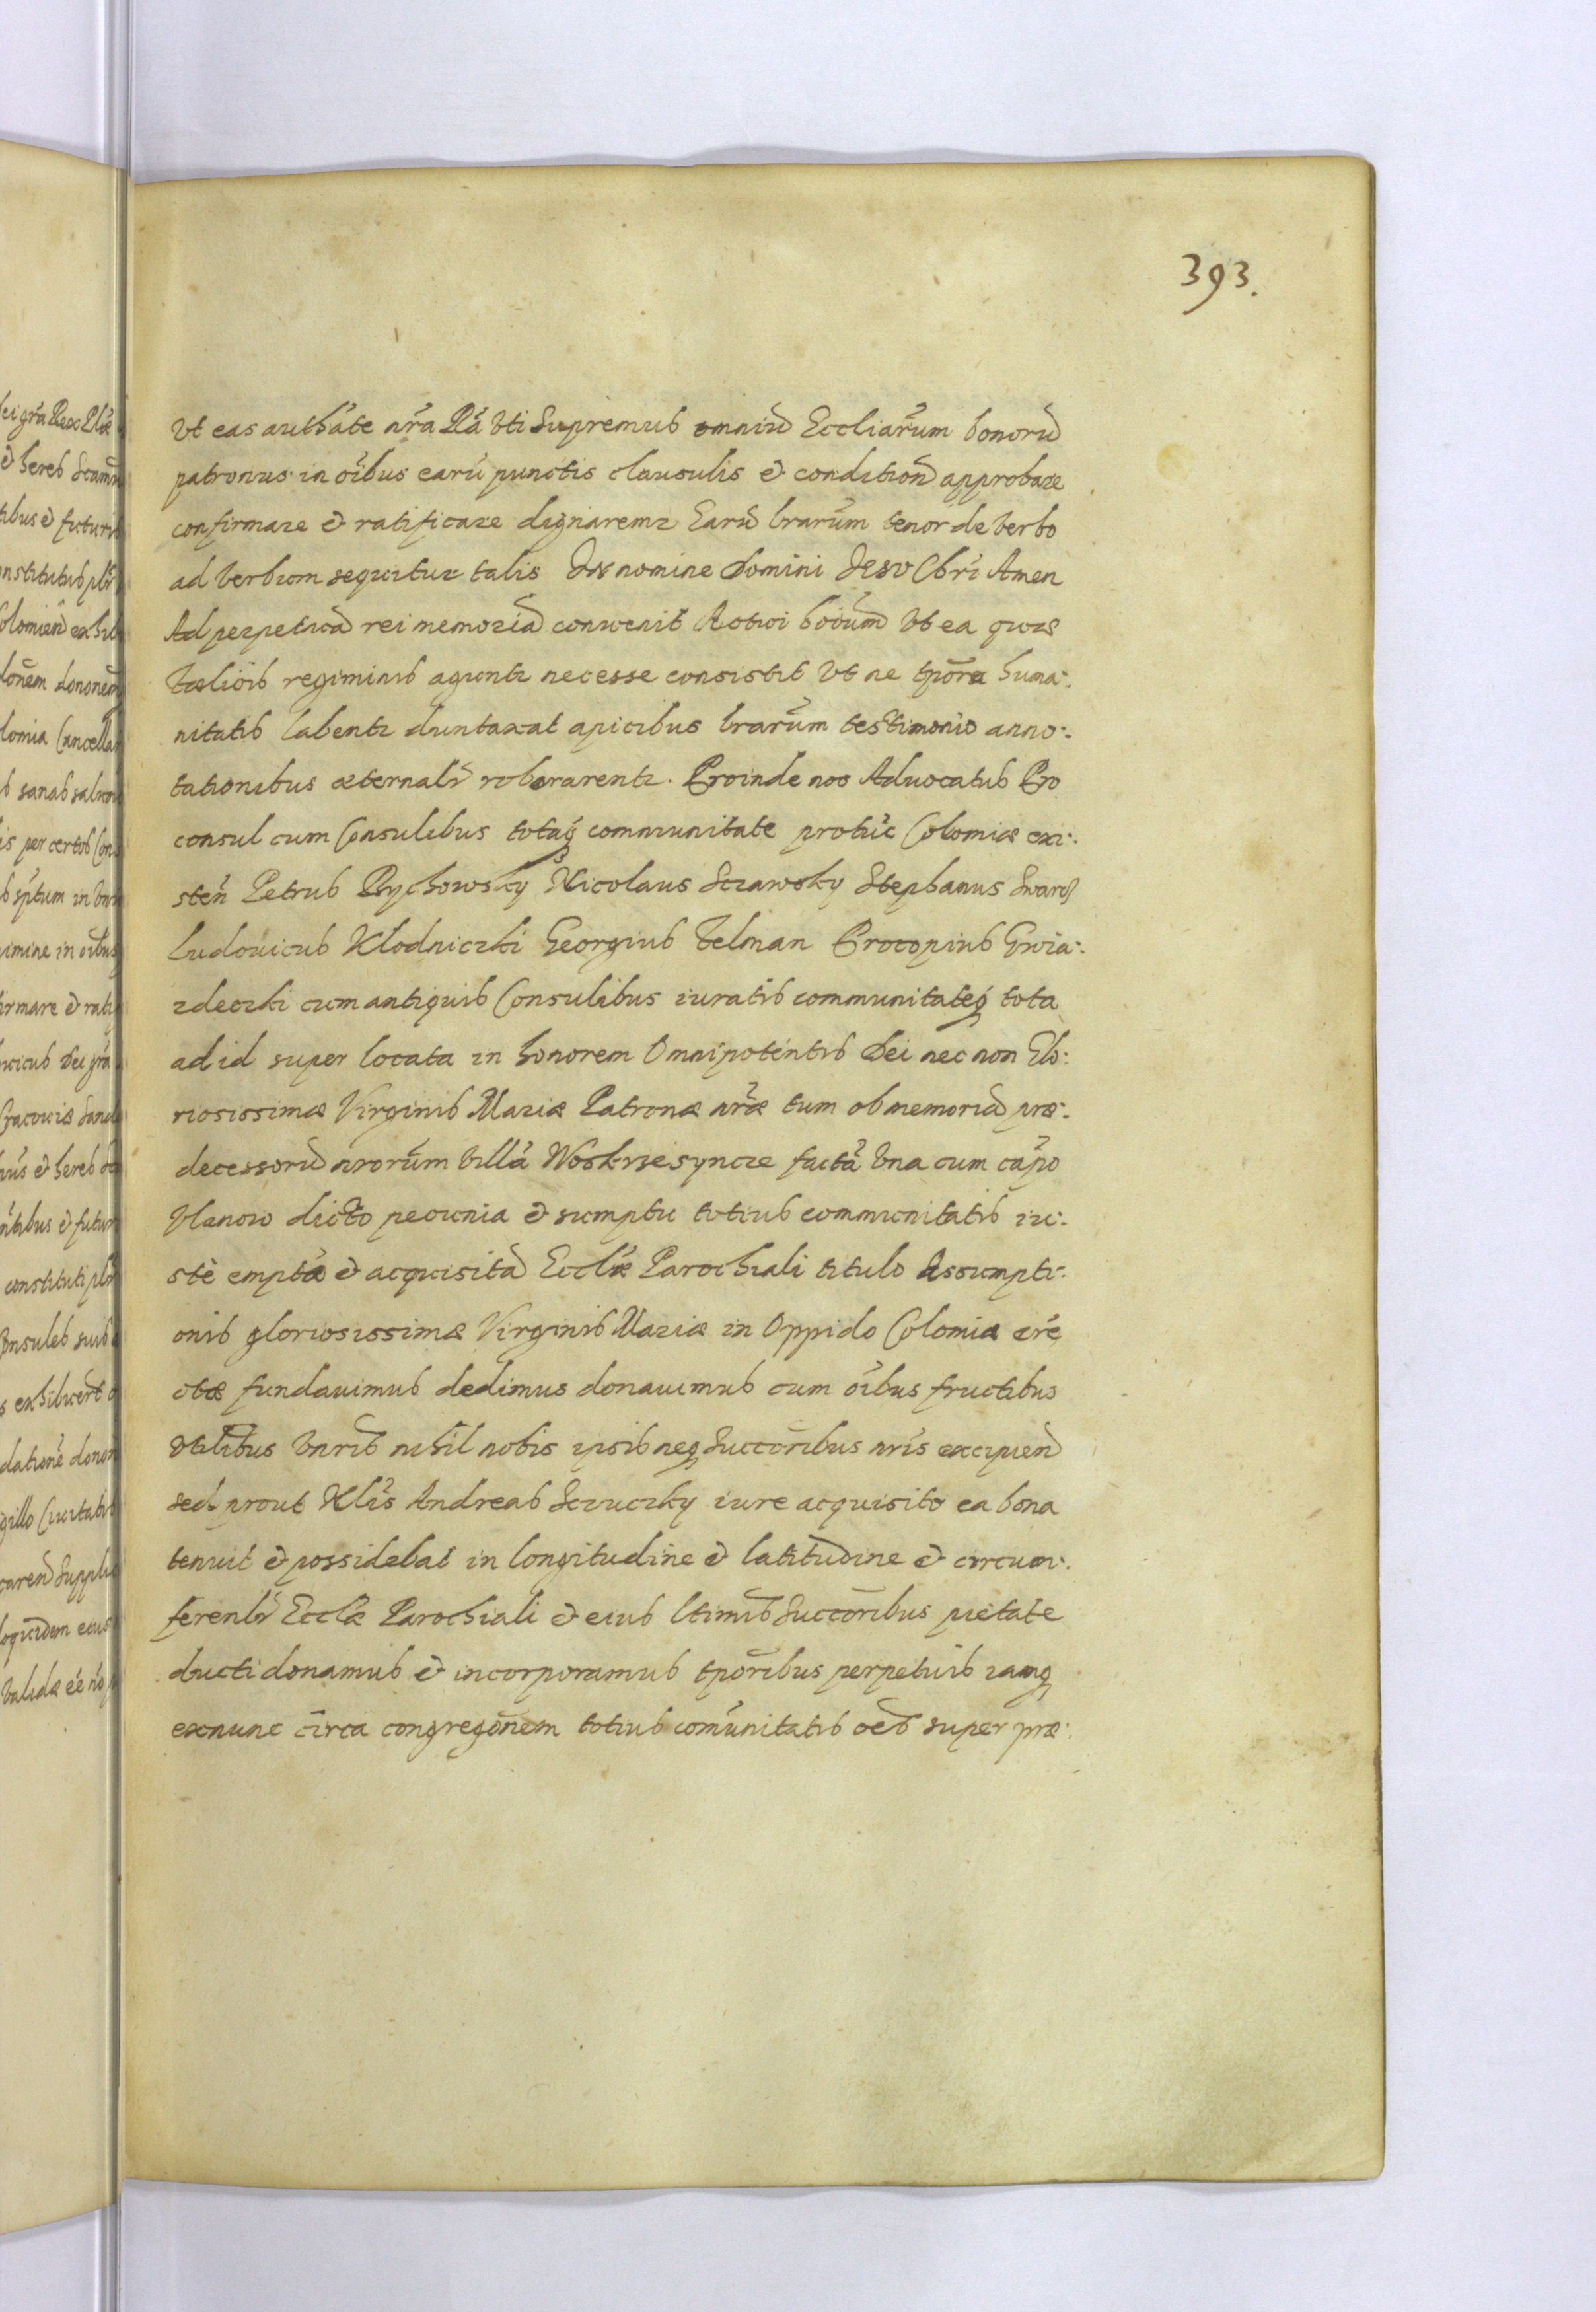 393.
Vt eas authãte nr̃a R̃a Vti Supremus omniũ Eccliarũm bonorũ
patronus in oĩbus earũ punctis clausulis & conditioñ approbare
confirmare & ratificare dignaremr Earũ lrarũm tenor de Verbo
ad Verbum sequitur talis In nomine Domini Iesv Chrĩ Amen
Ad perpetuã rei memoriã convenit Actui hoĩum Vt ea quæ
regiminis aguntr necesse consistit Vt ne tpõra huma:
nitatis labentr duntaxat apicibus lrarũm testimonio anno:
tationibus æternalr̃ roborarentr. Proinde nos Aduocatus Pro
consul cum Consulibus totaq communitate protũc Colomiæ exi:
steñ Petrus Rychowsky Nicolaus Sczawsky Stephanus
Ludouicus Klodniczki Georgius Telman Procopius Gwia:
zdeczki cum antiquis Consulibus iuratis communitateq tota
ad id super locata in honorem Omnipotentis Dei nec non Glo:
riosissimæ Virginis Mariæ Patronæ nr̃æ tum ob memoriã præ:
decessorũ nrorũm Villã Woskrzesyncze factã Vna cum cãpo
Vlanow dicto pecunia & sumptu totius communitatis iu:
stè emptã & acquisitã Ecclæ̃ Parochiali titulo Assumpti:
onis gloriosissimæ Virginis Mariæ in Oppido Colomiæ ere
ctæ fundauimus dedimus donauimus cum oĩbus fructibus
Vtilĩbus Vnr̃is nihil nobis ipsis neq Succõribus nrĩs excipieñ
sed prout Andreas Sczuczky iure acquisito ea bona
tenuit & possidebat in longitudine & latitudine & circum:
ferenl̃r Ecclæ̃ Parochiali & eius ltimĩs Succõribus pietate
ducti donamus & incorporamus tpõribus perpetuis iamq
exnunc circa congregõnem totius comũnitatis oẽs super præ: